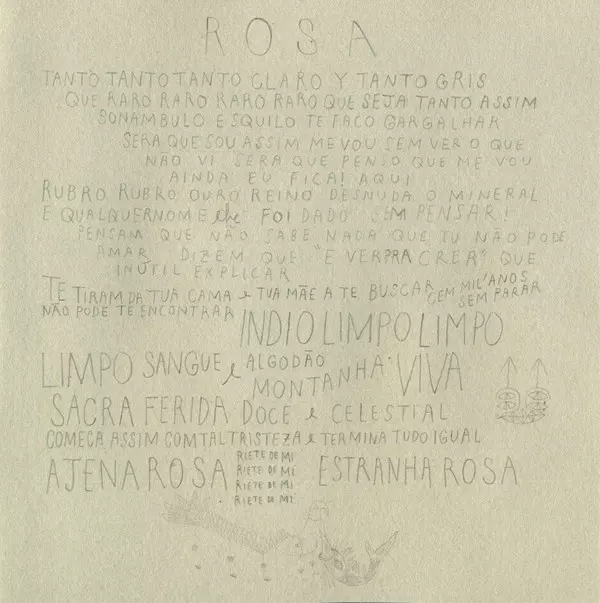 ROSA
TANTO TANTO TANTO CLARO Y TANTO GRIS
QUE RARO RARO RARO RARO QUE SEJA TANTO ASSIM
SONAMBULO E SQUILO TE FACO GARGALHAR
SERA QUE SOU ASSIM ME VOU SEM VER O QUE
NÃO VI SERA QUE PENSO QUE ME VOU
AINDA EU FICA! AQUI
RUBRO RUBRO OURO REINO DESNUDA O MINERAL
E QUALQUER NOME lhe FOI DADO SEM PENSAR!
PENSAM QUE NÃO SABE NADA QUE TU NÃO PODE
AMAR DIZEM QUE "E VER PRA CRER" QUE
INUTIL EXPLICAR
TE TIRAM DA TUA CAMA e TUA MÃE A TE BUSCAR CEM MIL'ANOS SEM PARAR
NÃO PODE TE ENCONTRAR INDIO LIMPO LIMPO
LIMPO SANGUE e ALGODÃO MONTANHA VIVA
SACRA FERIDA DOCE e CELESTIAL
COMEÇA ASSIM COM TAL TRISTEZA e TERMINA TUDO IGUAL
AJENA ROSA RIETE DE MI ESTRANHA ROSA
RIETE DE MI
RIETE DE MI
RIETE DE MI